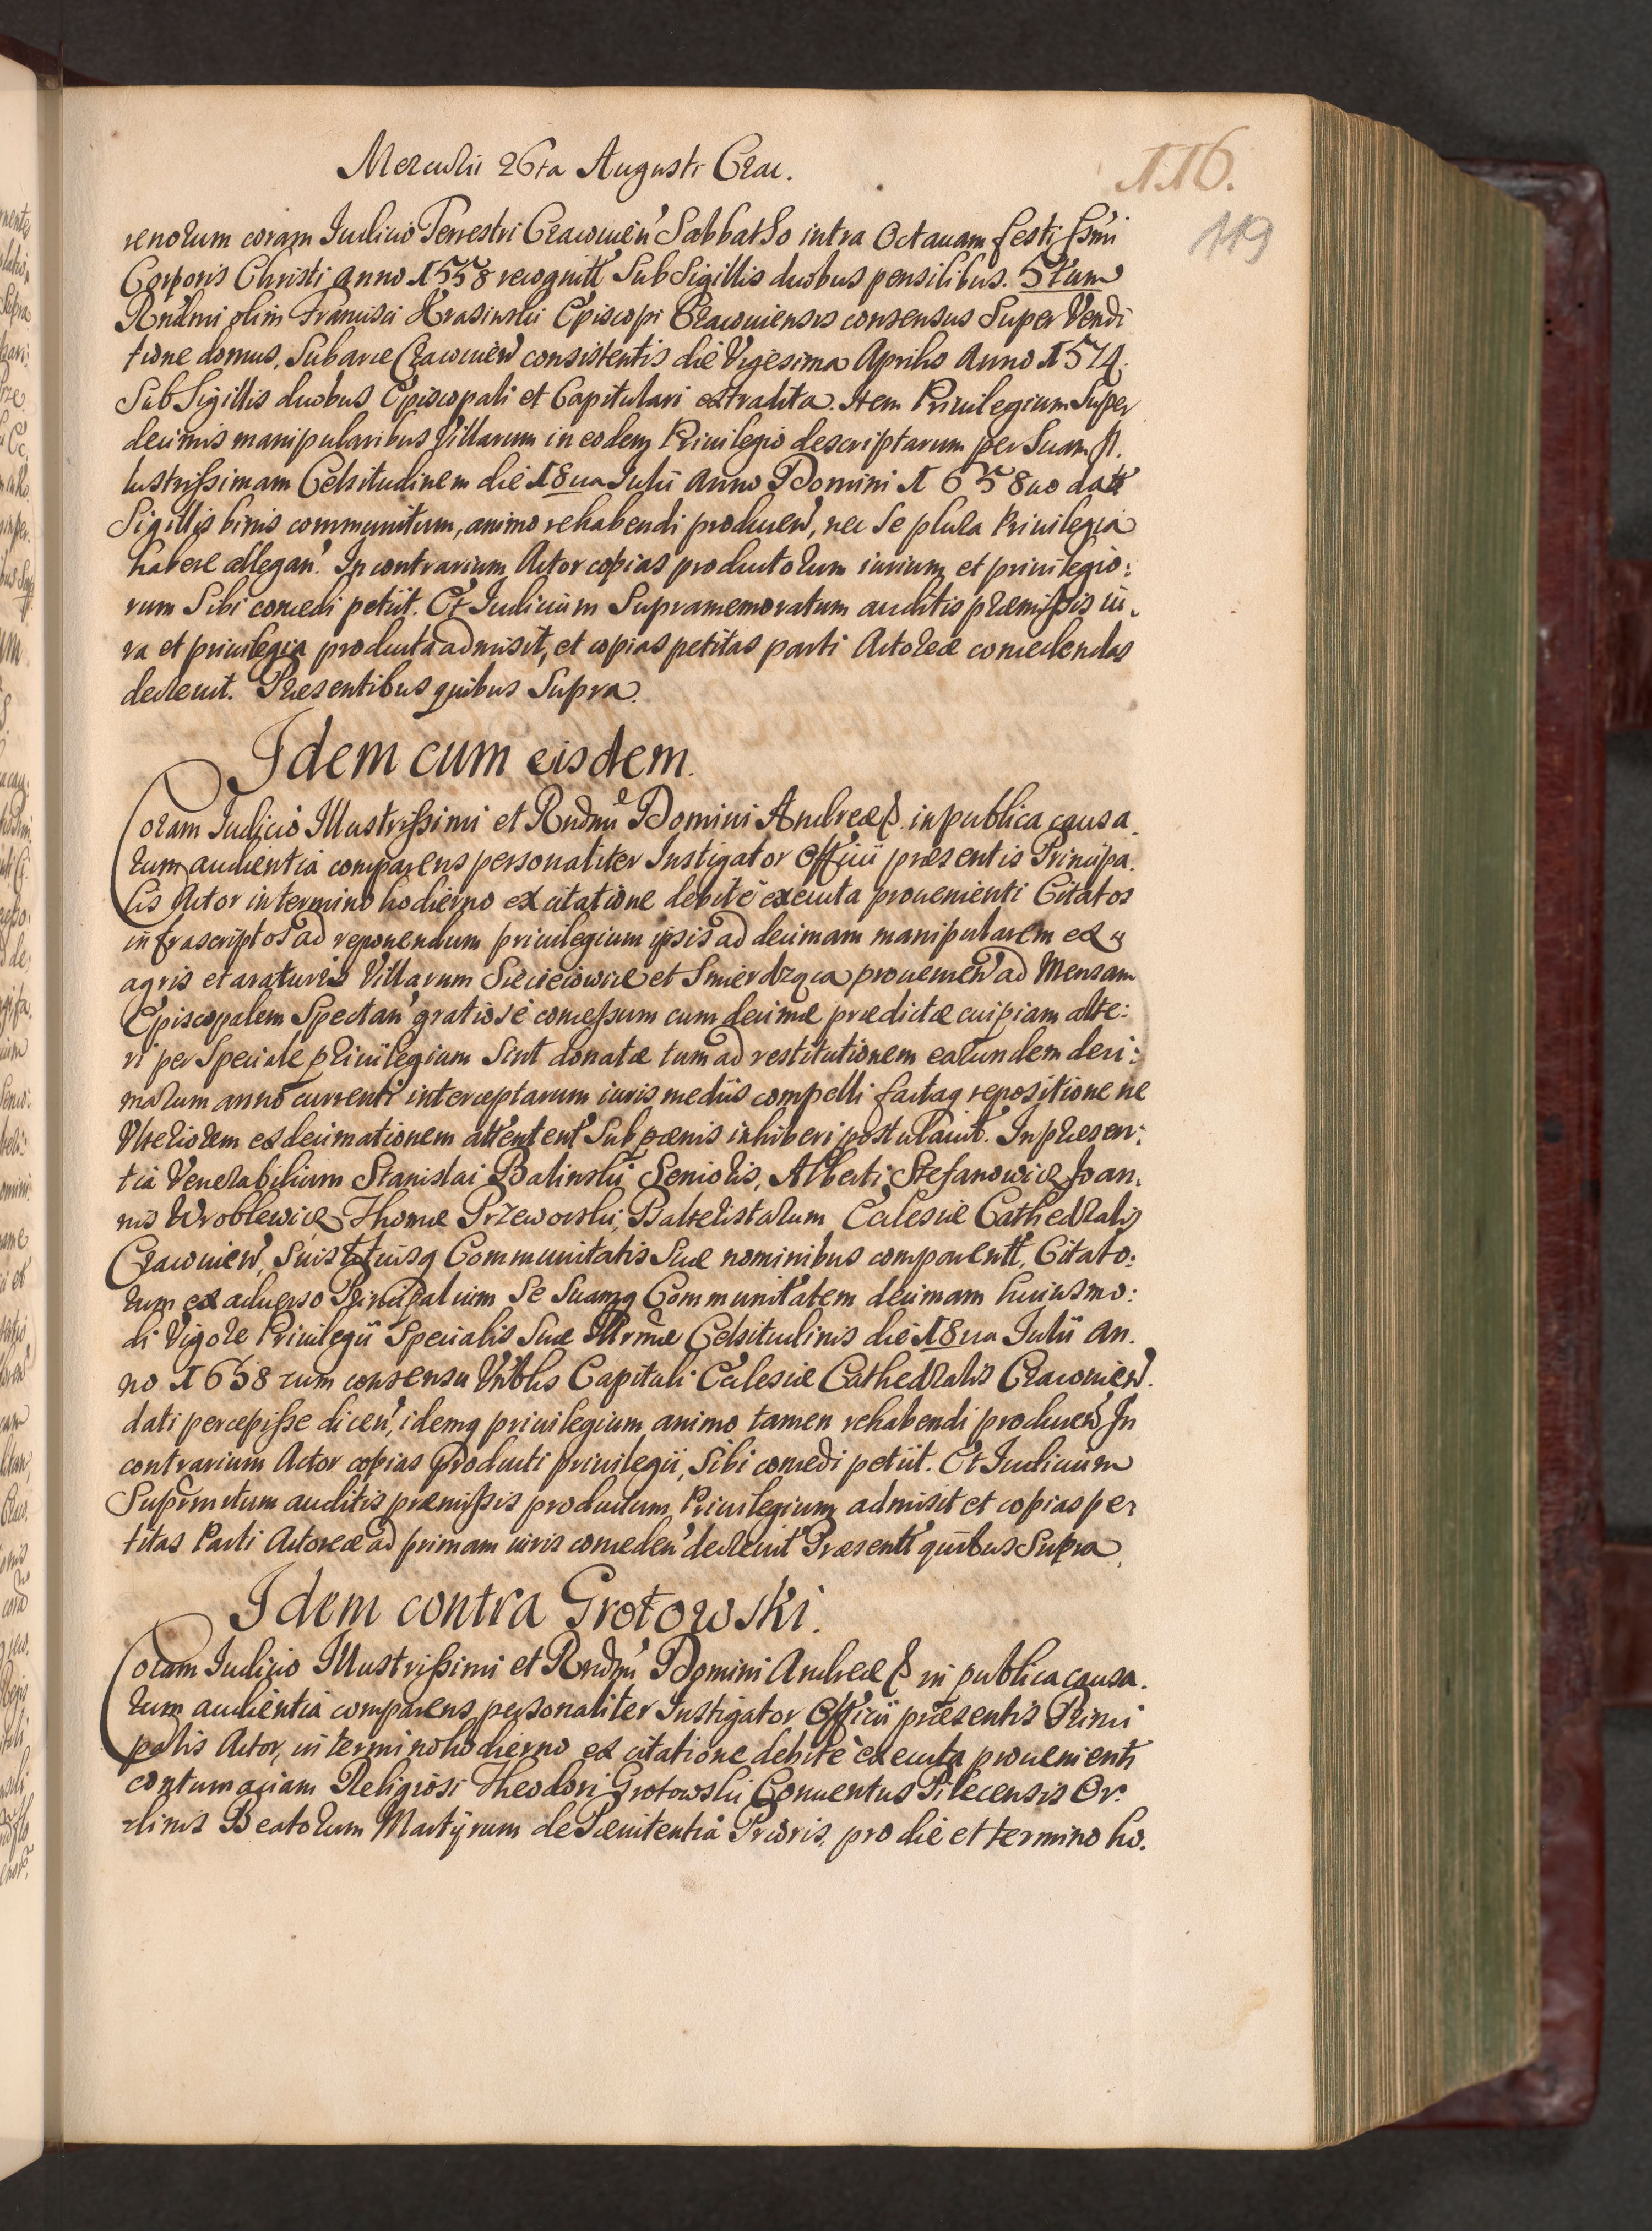 Mercurii 26ta Augusti Crac.
116.
119
renorum coram Iudicio Terrestri Cracouień Sabbatho intra Octauam festi Ssmi
Corporis Christi anno 1558 recognitt Sub Sigillis duobus pensilibus. 5tum
Rndmi olim Francisci Krasinski Episcopi Cracouiensis consensus Super Vendi
tione domus, Sub arce Cracouień consistentis die Vigesima Aprilis Anno 1574.
Sub Sigillis duobus Episcopali et Capitulari extradita. Item Priuilegium Super
decimis manipularibus Villarum in eodem Priuilegio descriptarum per Suam Il.
lustrissimam Celsitudinem die 18ua Iulii Anno Domini 1658uo datt
Sigillis binis communitum, animo rehabendi producen̄, nec Se plura Priuilegia
habere allegan̄. In contrarium Actor copias productorum iurium et priuilegio:
rum Sibi concedi petiit. Et Iudicium Supramemoratum auditis præmissis iu.
ra et priuilegia producta admisit, et copias petitas parti Actoreæ concedendas
decreuit. Præsentibus quibus Supra.
Idem cum eisdem.
Coram Iudicio Illustrissimi et Rndmi Domini Andreæ &. in publica causa.
rum audientia comparens personaliter Instigator Officii præsentis Principa.
lis Actor in termino hodierno ex citatione debite executa prouenienti Citatos
infrascriptos ad reponendum priuilegium ipsis ad decimam manipularem ex
agris et araturis Villarum Sieciechowice et Smierdzqca prouenień ad Mensam
Episcopalem Spectan̄ gratiose concessum cum decimæ prædictæ cuipiam alte:
ri per Speciale priuilegium Sint donatæ tum ad restitutionem earundem deci:
marum anno currenti interceptarum iuris mediis compelli factaq repositione ne
Vlteriorem exdecimationem attentent Sub pœnis inhiberi postulauit. In præsen:
tia Venerabilium Stanislai Balinski Senioris, Alberti Stefanowicz Ioan.
nis Wroblewicz Thomæ Przeworski, Psalteristarum Ecclesiæ Cathedralis
Cracouień, Suis totiusq Communitatis Suæ nominibus comparentt, Citato:
rum ex aduerso Principalium Se Suamq Communitatem decimam huiusmo:
di Vigore Priuilegii Specialis Suæ Illrmæ Celsitudinis die 18ua Iulii An.
no 1658 cum consensu Vnblis Capituli Ecclesiæ Cathedralis Cracouień.
dati percepisse dicen̄, idemq priuilegium animo tamen rehabendi producen̄ In
contrarium Actor copias Producti priuilegii, Sibi concedi petiit. Et Iudicium
Suprmtum auditis præmissis productum Priuilegium admisit et copias pe:
titas Parti Actoreæ ad primam iuris conceden̄ decreuit Præsentt quibus Supra.
Idem contra Grotowski.
Coram Iudicio Illustrissimi et Rndmi Domini Andreæ & in publica causa.
rum audientia comparens personaliter Instigator Officii præsentis Princi
palis Actor, in termino hodierno ex citatione debite executa prouenienti
contumaciam Religiosi Theodori Grotowski Conuentus Pilecensis Or:
dinis Beatorum Martyrum de Pœnitentia Prioris, pro die et termino ho.